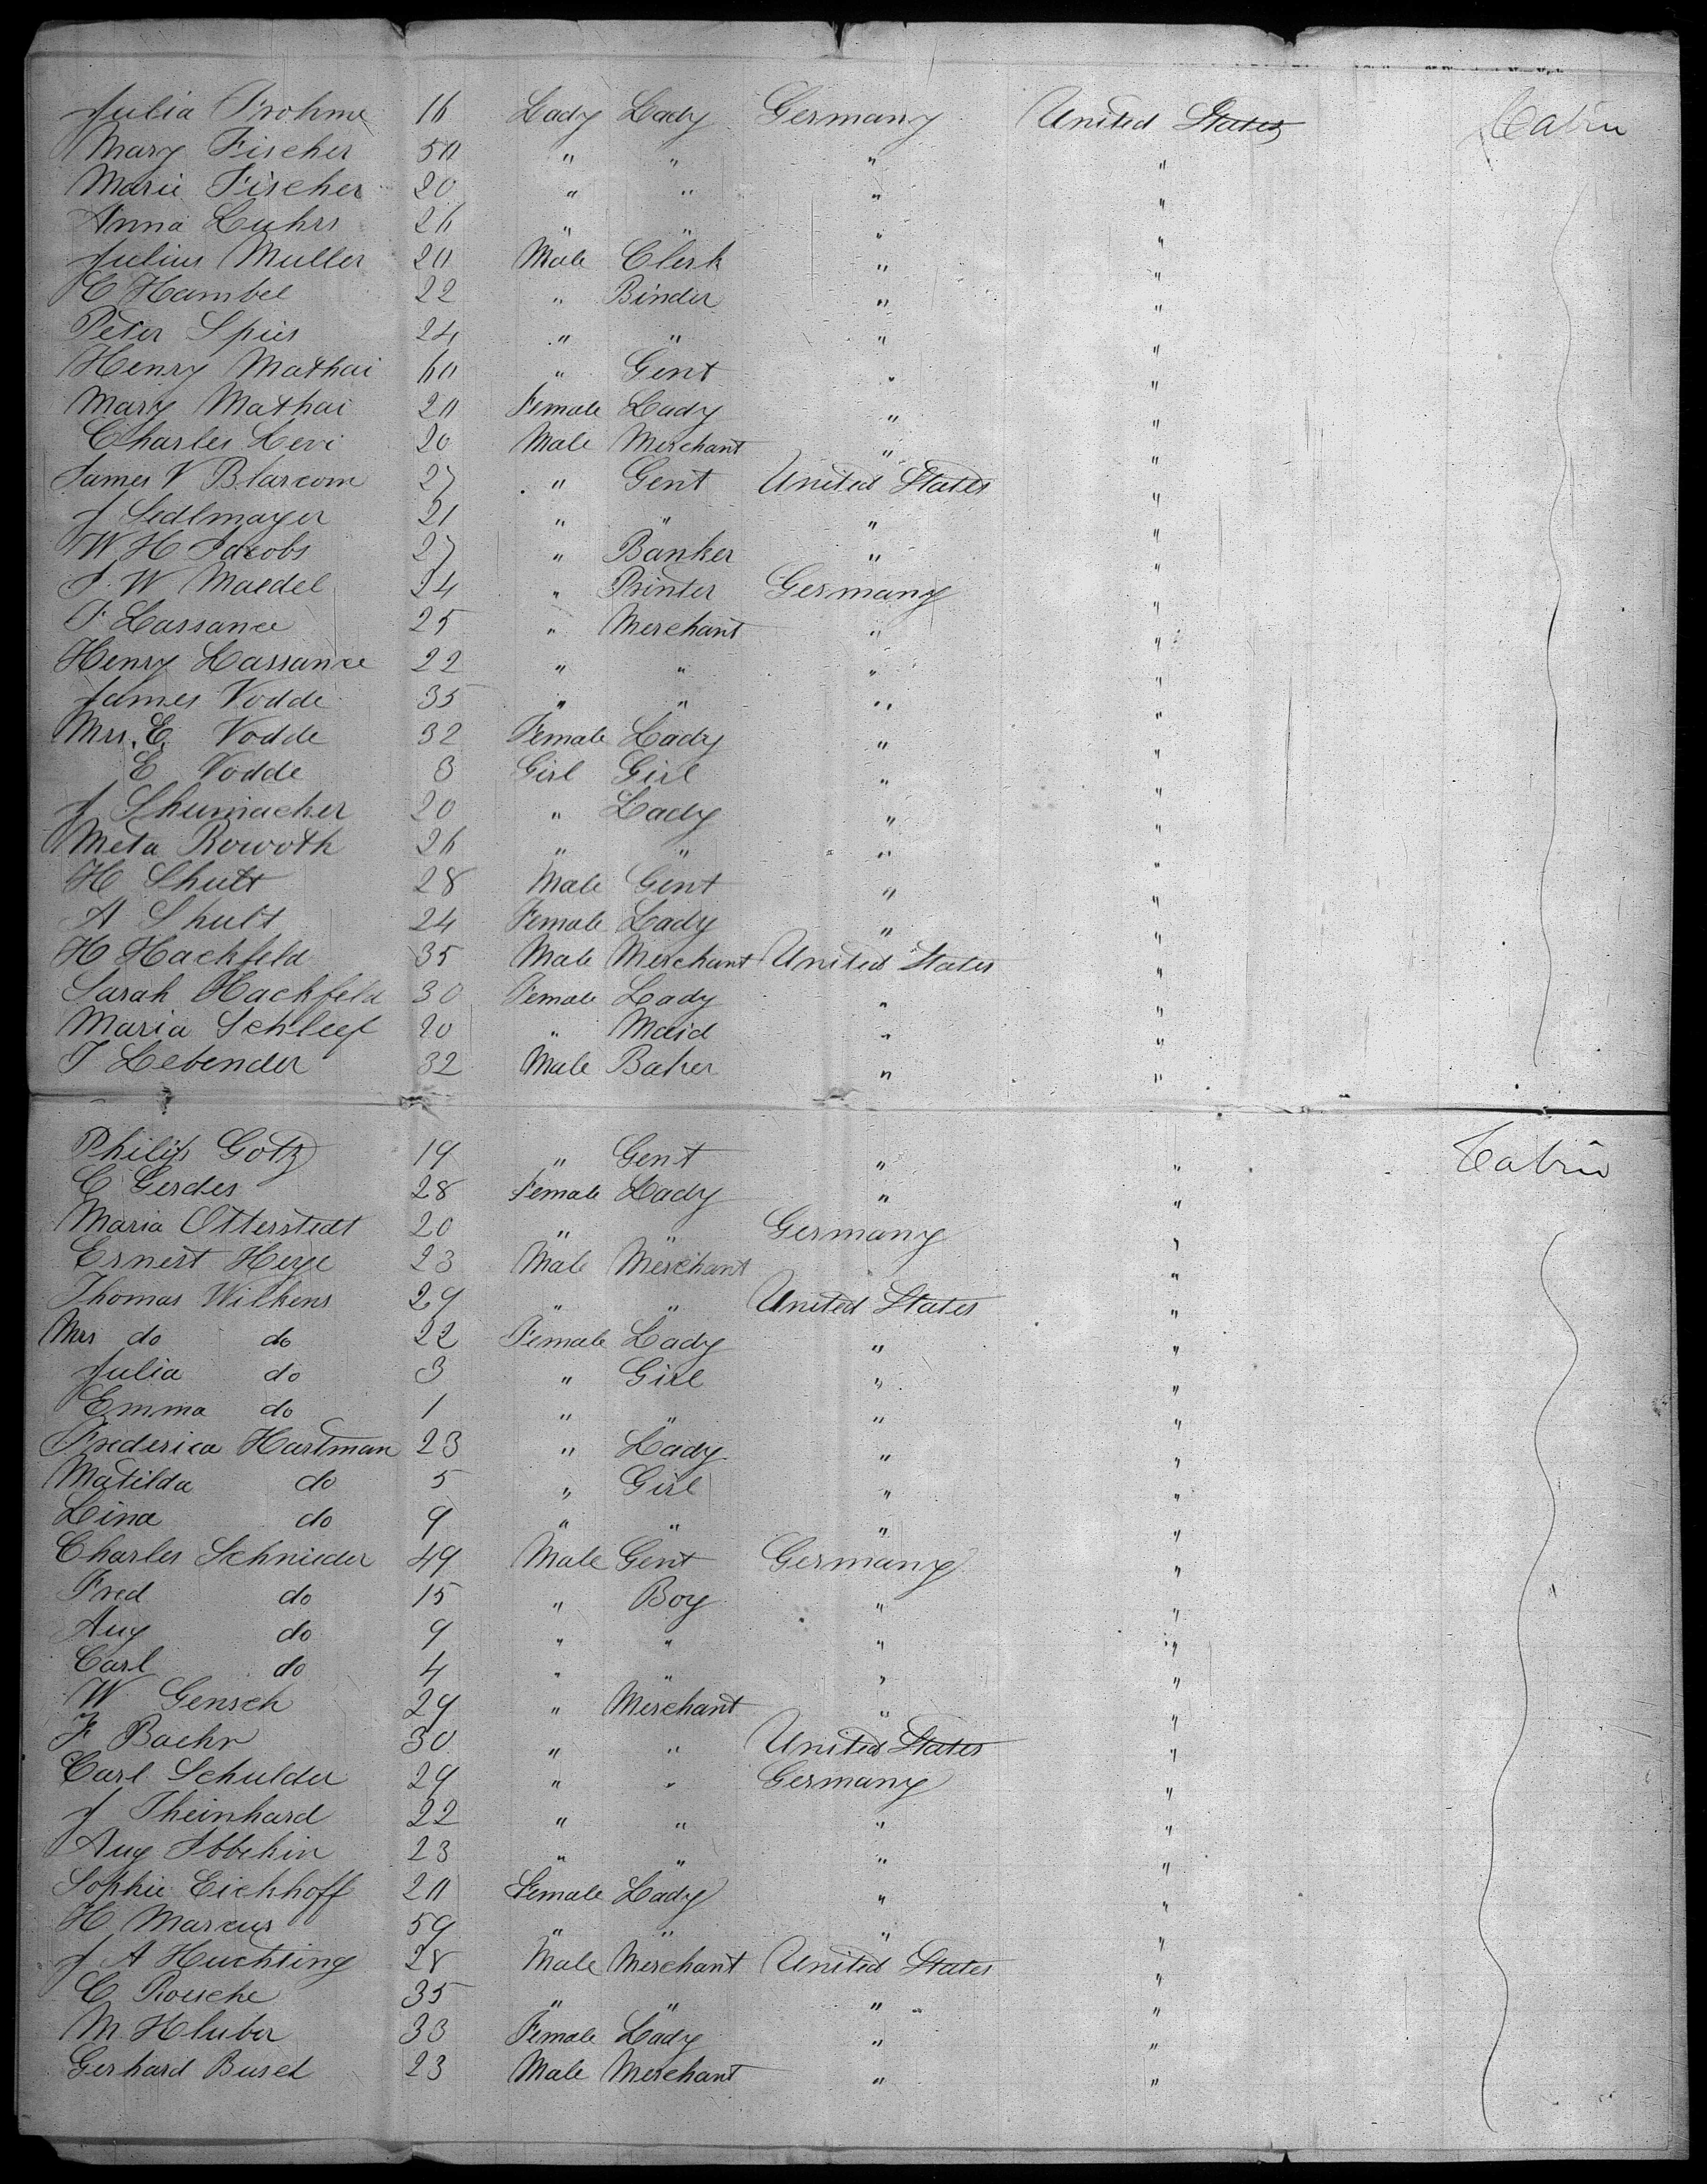 Julia Prohme 16 Lady Lady Germany United States Cabin
Mary Fischer 50 " " " "
Marie Fischer 20 " " " "
Anna Luhrs 26 " " " "
Julius Muller 20 Male Clerk " "
C Hambel 22 " Binder " "
Peter Spies 24 " " " "
Henry Mathai 60 " Gent " "
Mary Mathai 20 Female Lady " "
Charles Levi 20 Male Merchant " "
James V Blarcom 27 " Gent United States "
J Sedlmayer 21 " " " "
W H Jacobs 27 " Banker " "
F. W Maedel 24 " Printer Germany "
F Lassance 25 " Merchant " "
Henry Lassance 22 " " " "
James Vodde 35 " " " "
Mrs. E. Vodde 32 Female Lady " "
E Vodde 3 Girl Girl " "
J Shumacher 20 " Lady " "
Meta Rowoth 26 " " " "
H Shult 28 Male Gent " "
A Shult 24 Female Lady " "
H Hackfeld 35 Male Merchant United States "
Sarah Hackfeld 30 Female Lady " "
Maria Schleef 20 " Maid " "
T Lebender 32 Male Baker " "
Philip Gotz 19 " Gent " " Cabin
C Gerdes 28 Female Lady " "
Maria Otterstedt 20 " " Germany "
Ernest Heye 23 Male Merchant "
Thomas Wilkens 29 " " United States "
Mrs do do 22 Female Lady " "
Julia do 3 " Girl " "
Emma do 1 " " " "
Frederica Hartman 23 " Lady " "
Matilda do 5 " Girl " "
Lina do 9 " " " "
Charles Schnieder 49 Male Gent Germany "
Fred do 15 " Boy " "
Aug do 9 " " " "
Carl do 4 " " " "
W Gensch 29 " Merchant " "
F Baehr 30 " " United States "
Carl Schulder 29 " " Germany "
J Theinhard 22 " " " "
Aug Ibbekin 23 " " " "
Sophie Eickhoff 20 Female Lady " "
H Marcus 59 " " " "
J A Huchting 28 Male Merchant United States "
C Roesche 35 " " " "
M Hluber 33 Female Lady " "
Gerhard Bused 23 Male Merchant " "